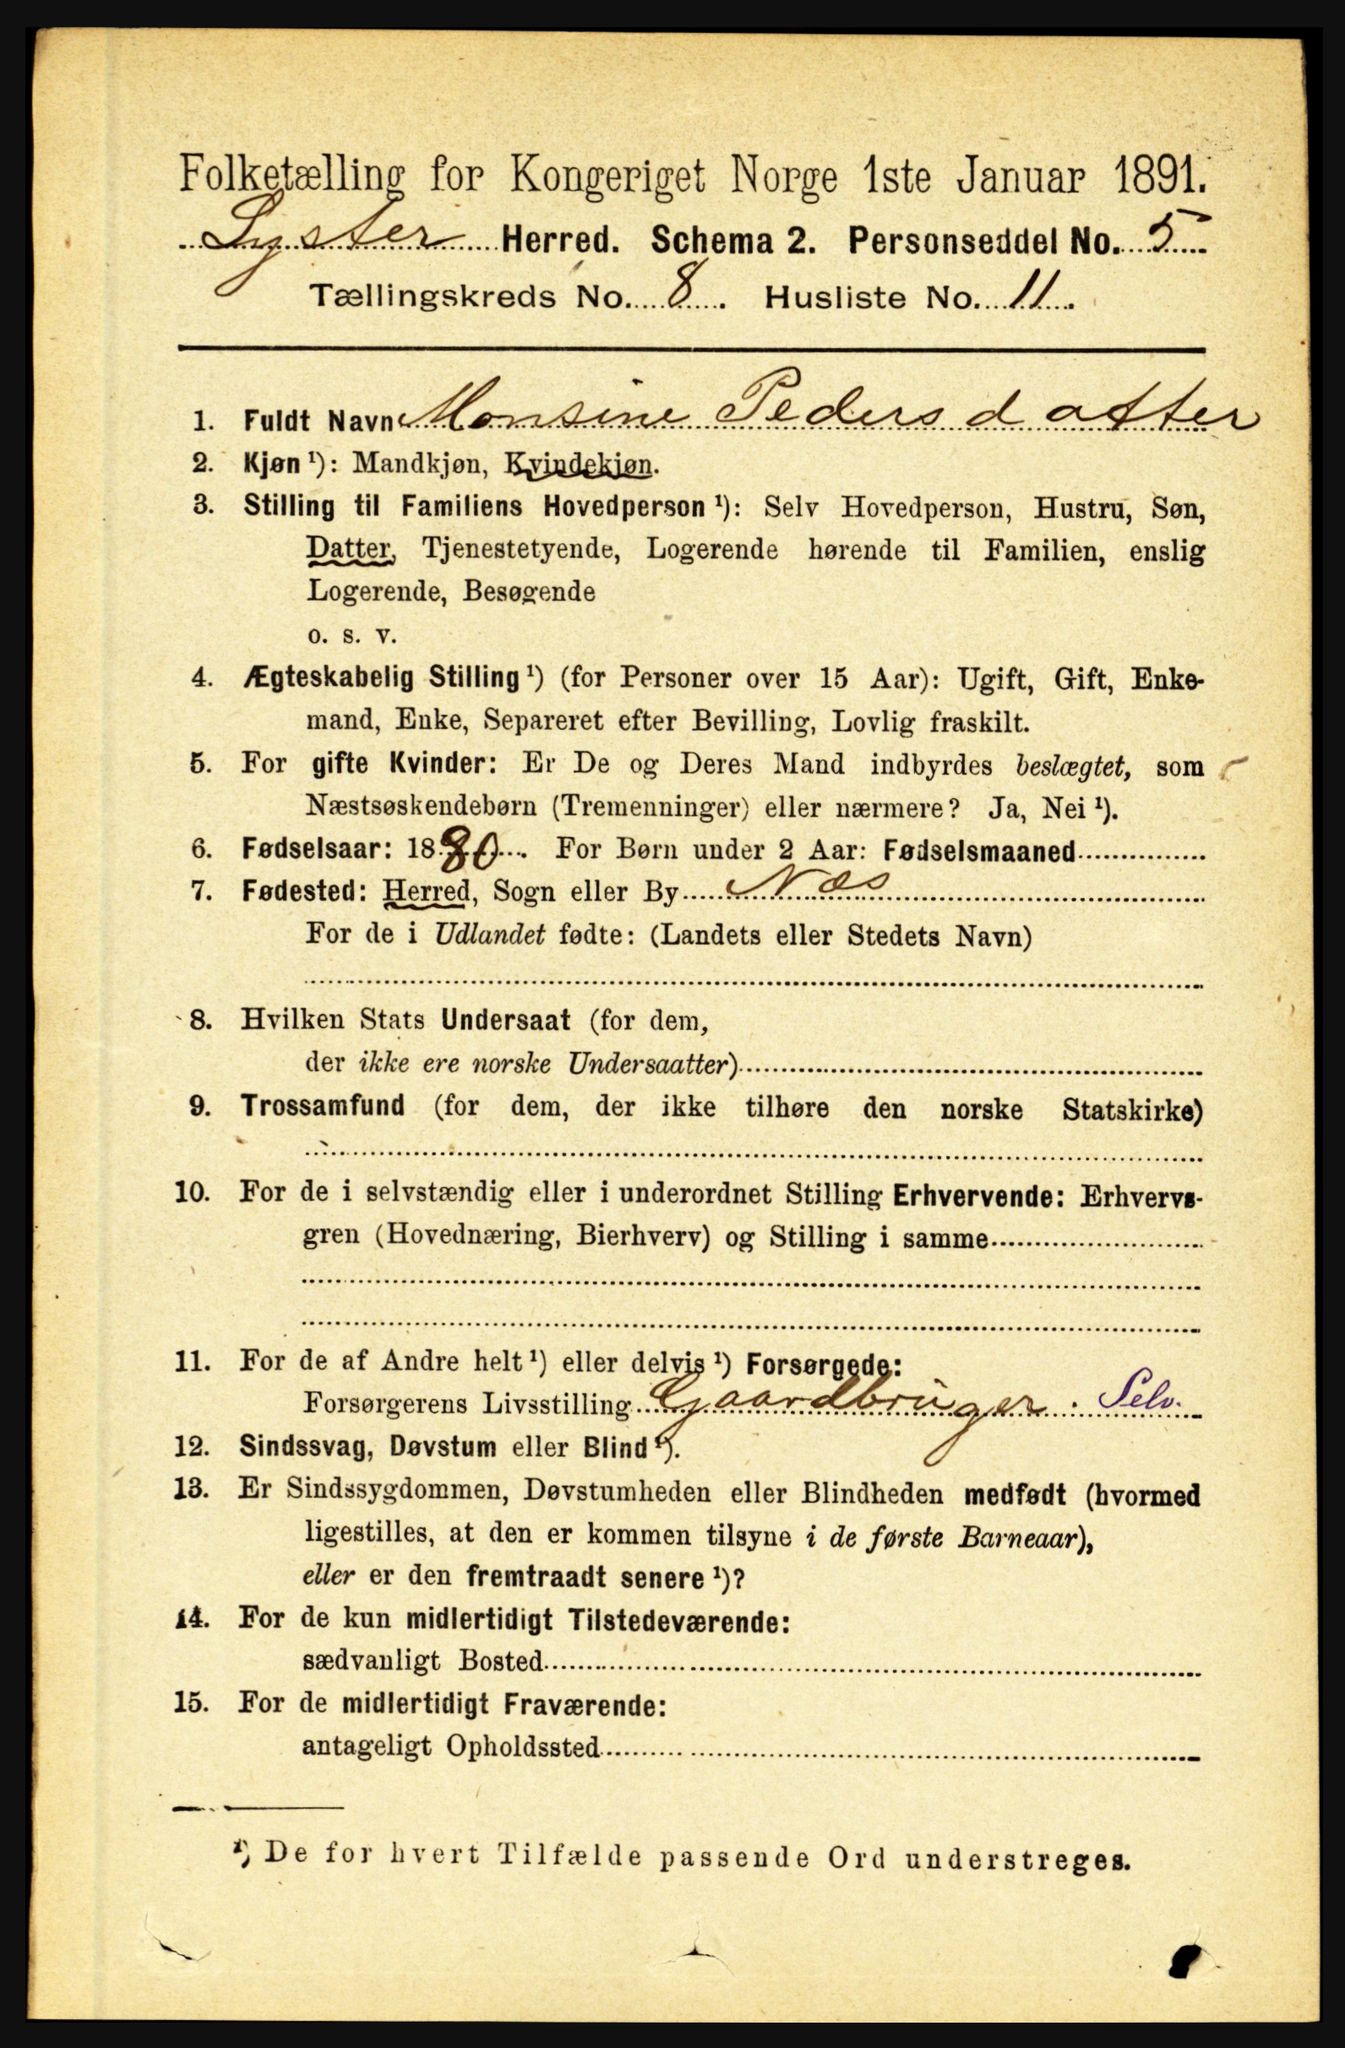 Folketælling for Kongeriget Norge 1ste Januar 1891.
Lyster Herred. Schema 2. Personseddel No. 5
Tællingskreds No. 8. Husliste No. 11.
1. Fuldt Navn Monsine Pedersdatter
2. Kjøn ¹): Mandkjøn, Kvindekjøn.
3. Stilling til Familiens Hovedperson ¹): Selv Hovedperson, Hustru, Søn,
Datter, Tjenestetyende, Logerende hørende til Familien, enslig
Logerende, Besøgende
o. s. v.
4. Ægteskabelig Stilling ¹) (for Personer over 15 Aar): Ugift, Gift, Enke-
mand, Enke, Separeret efter Bevilling, Lovlig fraskilt.
5. For gifte Kvinder: Er De og Deres Mand indbyrdes beslægtet, som
Næstsøskendebørn (Tremenninger) eller nærmere? Ja, Nei ¹).
6. Fødselsaar: 1880. For Børn under 2 Aar: Fødselsmaaned
7. Fødested: Herred, Sogn eller By Næs
For de i Udlandet fødte: (Landets eller Stedets Navn)
8. Hvilken Stats Undersaat (for dem,
der ikke ere norske Undersaatter)
9. Trossamfund (for dem, der ikke tilhøre den norske Statskirke)
10. For de i selvstændig eller i underordnet Stilling Erhvervende: Erhvervs-
gren (Hovednæring, Bierhverv) og Stilling i samme
11. For de af Andre helt ¹) eller delvis ¹) Forsørgede:
Forsørgerens Livsstilling Gaardbruger. Selv.
12. Sindssvag, Døvstum eller Blind ¹).
13. Er Sindssygdommen, Døvstumheden eller Blindheden medfødt (hvormed
ligestilles, at den er kommen tilsyne i de første Barneaar),
eller er den fremtraadt senere ¹)?
14. For de kun midlertidigt Tilstedeværende:
sædvanligt Bosted
15. For de midlertidigt Fraværende:
antageligt Opholdssted
¹) De for hvert Tilfælde passende Ord understreges.